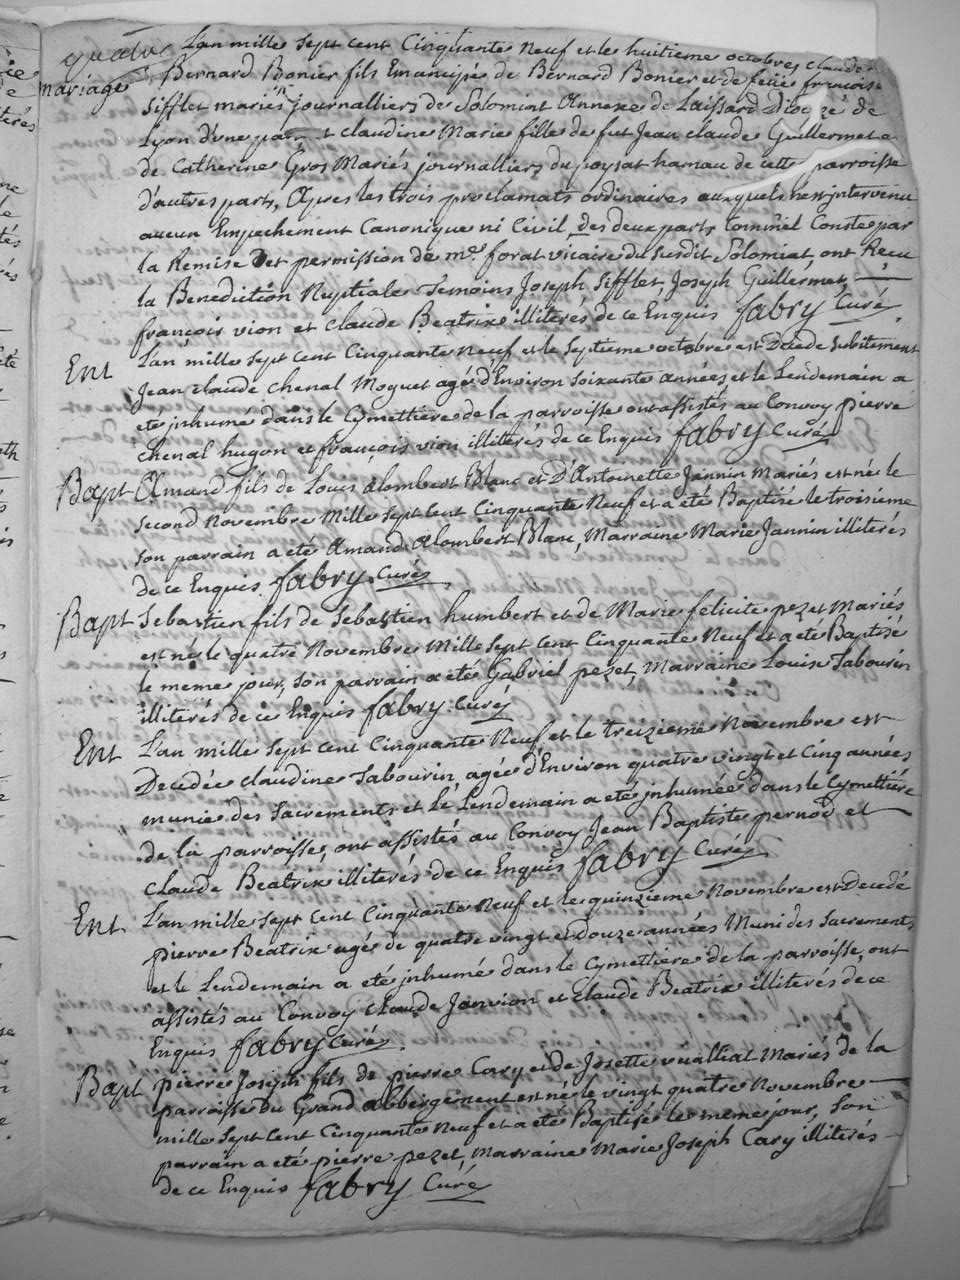 quatre
mariage
L'an mille sept cent Cinquante Neuf et le huitieme octobre, claude
Bernard Bonier fils Emancipé de Bernard Bonier et de feüe françoise
Sifflet mariés journalliers de Solomiat Annexe de Laissard Diocèze de
Lyon d'une part et claudine Marie fille de fut Jean claude Guillermet e
de Catherine Gros Mariés journalliers du poysat hamau de cette parroisse
d'autres parts, Apres les trois proclamats ordinaires auxquels n'est intervenu
aucun Empechement Canonique ni Civil, des deux parts Comm̃e il Conste par
la Remise et permission de mr forat vicaire du susdit Solomiat, ont Recu
la Benediction Nuptiale Temoins Joseph Sifflet, Joseph Guillermet,
françois vion et claude Beatrix illiterés de ce Enquis fabry Curé.
Ent L'an mille sept cent Cinquante Neuf et le septieme octobre est Decede subitement
Jean claude Chenal Moguet agé d'Environ soixante années et le Lendemain a
eté jnhumé dans le Cymettiere de la parroisse ont assistés au Convoy pierre
chenal hugon et françois vion illiterés de ce Enquis fabry Curé
Bapt Amand fils de Louis Alombert Blanc et D'Antoinette Jannin Mariés est né le
second Novembre Mille sept cent Cinquante Neuf et a eté Baptisé le troisieme
son parrain a eté Amand Alombert Blanc, Marraine Marie Jannin illiterés
de ce Enquis fabry Curé
Bapt Sebastien fils de Sebastien humbert et de Marie felicite pezet Mariés
est né le quatre Novembre Mille sept cent Cinquante Neuf et a eté Baptisé
le meme jour, son parrain a eté Gabriel pezet, Marraine Louise Tabourin
illiterés de ce Enquis fabry Curé
Ent L'an mille sept cent Cinquante Neuf et le treizieme Novembre est
Decedée claudine Tabourin agée d'Environ quatre vingt et Cinq années
munie des Sacrements et Le Lendemain a eté jnhumée dans le Cymettiére
de la parroisse, ont assistés au Convoy Jean Baptiste pernod et
claude Beatrix illiterés de ce Enquis fabry Curé
Ent L'an mille sept cent Cinquante Neuf et le quinzieme Novembre est Decedé
pierre Beatrix agé de quatre vingt et douze années Muni des Sacrements
et le Lendemain a eté jnhumé dans le Cymettiere de la parroisse, ont
assistés au Convoy claude Janvion et claude Beatrix illiterés de ce
Enquis fabry Curé.
Bapt pierre Joseph fils de pierre Cary et de Josette vuailliat Mariés de la
parroisse du Grand abbergement est né le vingt quatre Novembre
mille sept cent Cinquante Neuf et a eté Baptisé le meme jour, son
parrain a eté pierre pezet, Marraine Marie Joseph Cary illiterés
de ce Enquis fabry Curé